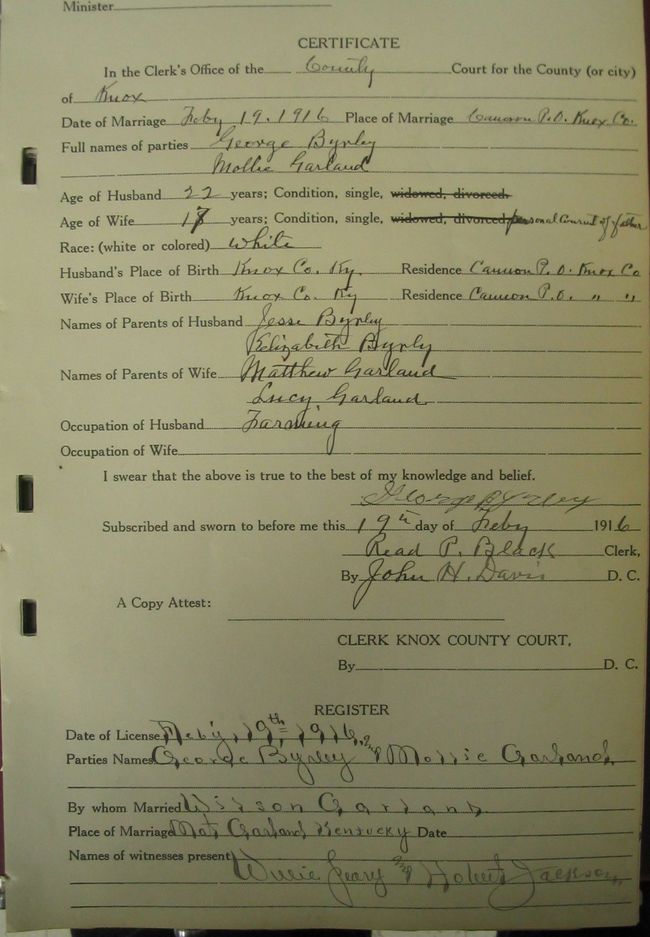 Minister
CERTIFICATE
In the Clerk's Office of the County Court for the County (or city)
of Knox
Date of Marriage Feby 19. 1916 Place of Marriage Cannon P.O. Knox Co.
Full names of parties George Byrley
Mollie Garland
Age of Husband 22 years; Condition, single, widowed, divorced.
Age of Wife 17 years; Condition, single, widowed, divorced personal Consent of father
Race: (white or colored) White
Husband's Place of Birth Knox Co. Ky. Residence Cannon P.O. Knox Co
Wife's Place of Birth Knox Co. Ky Residence Cannon P.O. " "
Names of Parents of Husband Jesse Byrley
Elizabeth Byrly
Names of Parents of Wife Matthew Garland
Lucy Garland
Occupation of Husband Farming
Occupation of Wife
I swear that the above is true to the best of my knowledge and belief.
George Byrley
Subscribed and sworn to before me this 19th day of Feby 1916
Read P. Black Clerk,
By John H. Davis D. C.
A Copy Attest:
CLERK KNOX COUNTY COURT,
By D. C.
REGISTER
Date of License Feby, 19th, 1916,
Parties Names George Byrley and Mollie Garland
By whom Married Wilson Garland
Place of Marriage Mat Garland Kentucky Date
Names of witnesses present Willie and Jackson